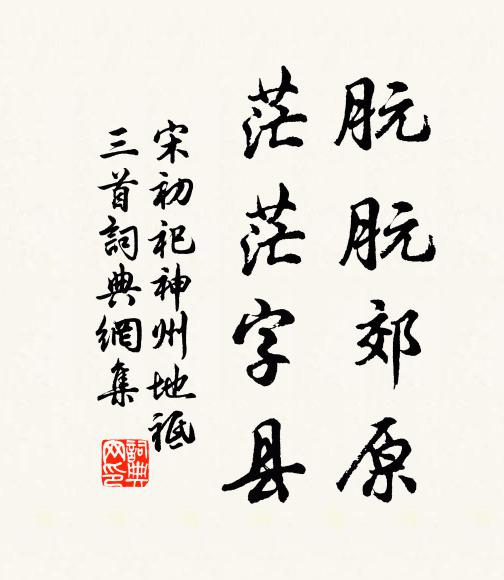 朊朊郊原
茫茫字县
宋初祀神州地祗
三首詞典網集
詞典
网印